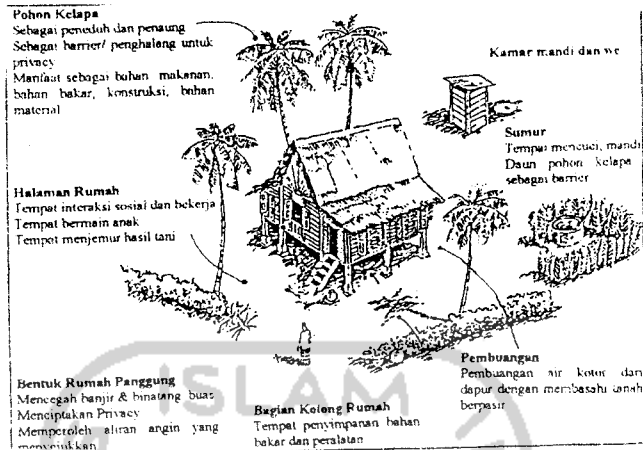 Pohon Kelapa
Sebagai peneduh dan penaung
Sebagai barrier/ penghalang untuk
privacy
Manfaat sebagai bahan makanan,
bahan bakar, konstruksi, bahan
material
Kamar mandi dan wc
Sumur
Tempat mencuci, mandi
Daun pohon kelapa
sebagai barrier
Halaman Rumah
Tempat interaksi sosial dan bekerja
Tempat bermain anak
Tempat menjemur hasil tani
Pembuangan
Pembuangan air kotor dan
dapur dengan membasahi tanah
berpasir
Bentuk Rumah Panggung
Mencegah banjir & binatang buas
Menciptakan Privacy
Memperoleh aliran angin yang
menyejukkan
Bagian Kolong Rumah
Tempat penyimpanan bahan
bakar dan peralatan
ISLAM